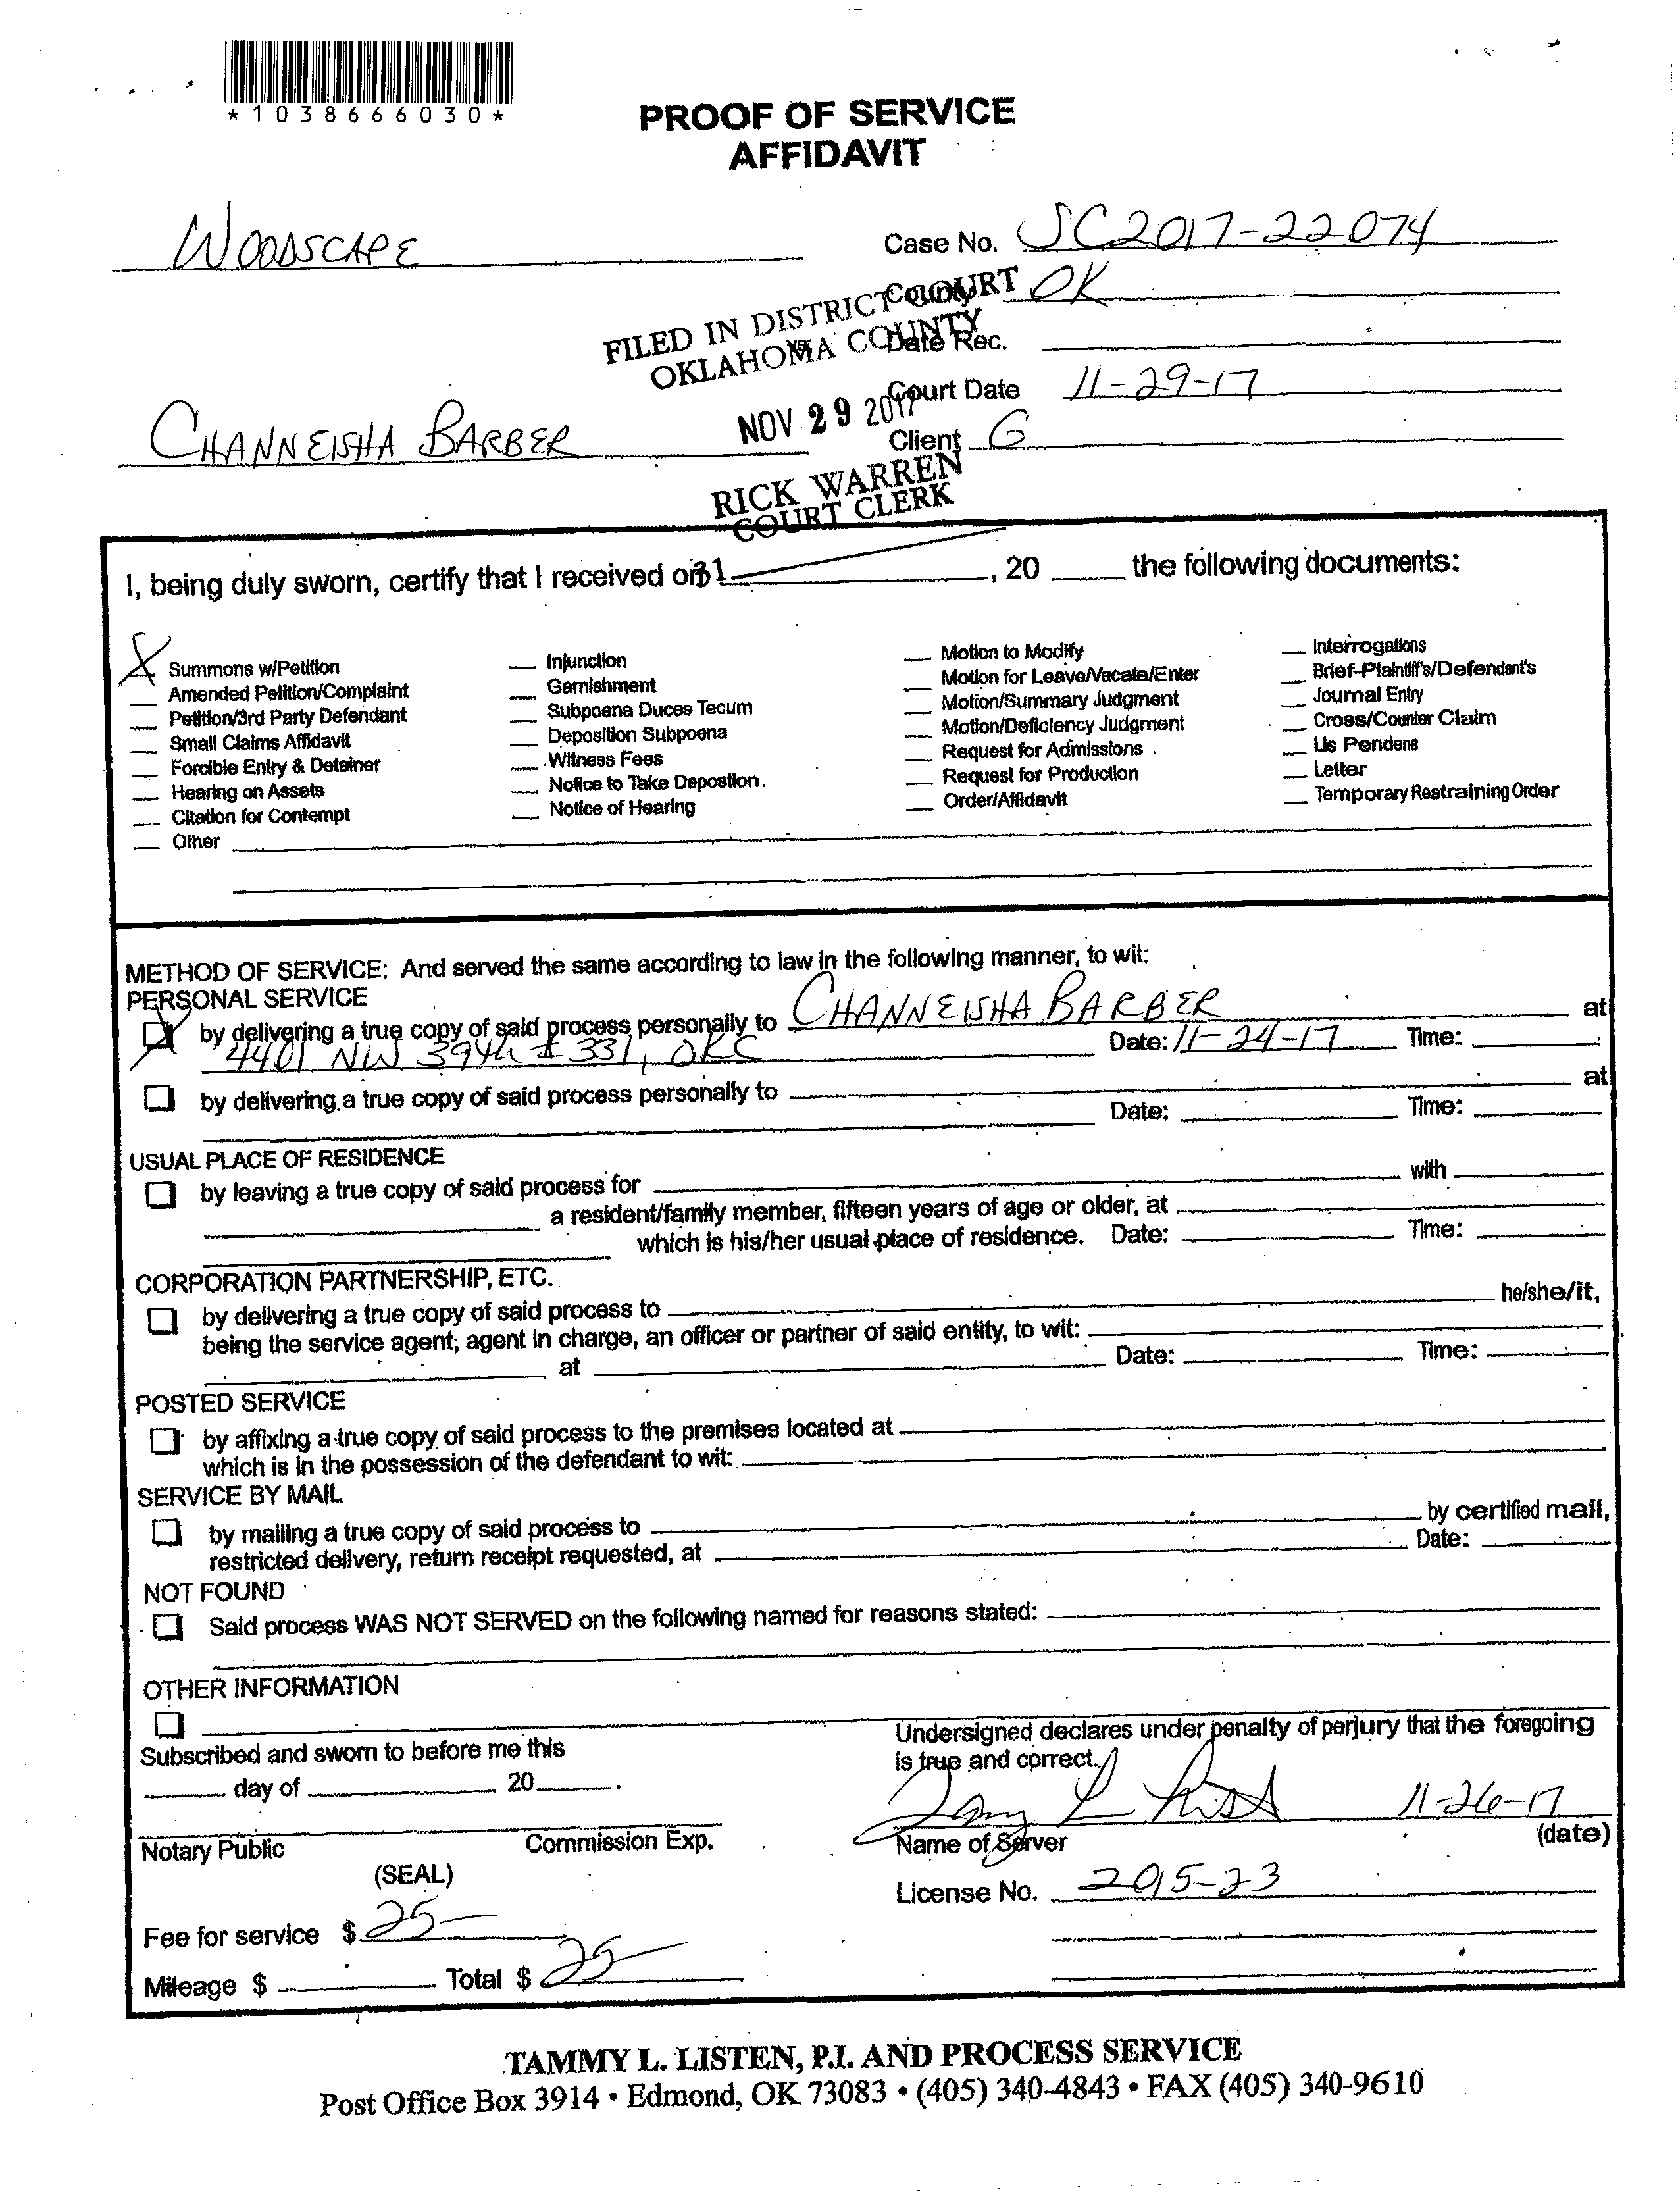 *1038666030*
PROOF OF SERVICE
AFFIDAVIT
WOODSCAPE
Case No. SC2017-22074
County OK
FILED IN DISTRICT COURT
OKLAHOMA COUNTY
vs.
Date Rec.
Court Date 11-29-17
NOV 29 2017
CHANNEISHA BARBER
Client G
RICK WARREN
COURT CLERK
31
I, being duly sworn, certify that I received on , 20 the following documents:
X Summons w/Petition
Amended Petition/Complaint
Petition/3rd Party Defendant
Small Claims Affidavit
Forcible Entry & Detainer
Hearing on Assets
Citation for Contempt
Other
Injunction
Garnishment
Subpoena Duces Tecum
Deposition Subpoena
Witness Fees
Notice to Take Depostion.
Notice of Hearing
Motion to Modify
Motion for Leave/Vacate/Enter
Motion/Summary Judgment
Motion/Deficiency Judgment
Request for Admissions
Request for Production
Order/Affidavit
Interrogations
Brief-Plaintiff's/Defendant's
Journal Entry
Cross/Counter Claim
Lis Pendens
Letter
Temporary Restraining Order
METHOD OF SERVICE: And served the same according to law in the following manner, to wit:
PERSONAL SERVICE
X by delivering a true copy of said process personally to CHANNEISHA BARBER at
4401 NW 39th # 331, OKC Date: 11-24-17 Time:
by delivering a true copy of said process personally to at
Date: Time:
USUAL PLACE OF RESIDENCE
by leaving a true copy of said process for with
a resident/family member, fifteen years of age or older, at
which is his/her usual place of residence. Date: Time:
CORPORATION PARTNERSHIP, ETC.
by delivering a true copy of said process to he/she/it,
being the service agent; agent in charge, an officer or partner of said entity, to wit:
at Date: Time:
POSTED SERVICE
by affixing a true copy of said process to the premises located at
which is in the possession of the defendant to wit:
SERVICE BY MAIL
by mailing a true copy of said process to by certified mail,
restricted delivery, return receipt requested, at Date:
NOT FOUND
Said process WAS NOT SERVED on the following named for reasons stated:
OTHER INFORMATION
Undersigned declares under penalty of perjury that the foregoing
is true and correct.
Subscribed and sworn to before me this
day of 20 .
11-26-17
Name of Server (date)
Notary Public Commission Exp.
(SEAL)
License No. 2015-23
Fee for service $ 25-
Mileage $ Total $ 25-
TAMMY L. LISTEN, P.I. AND PROCESS SERVICE
Post Office Box 3914 • Edmond, OK 73083 • (405) 340-4843 • FAX (405) 340-9610